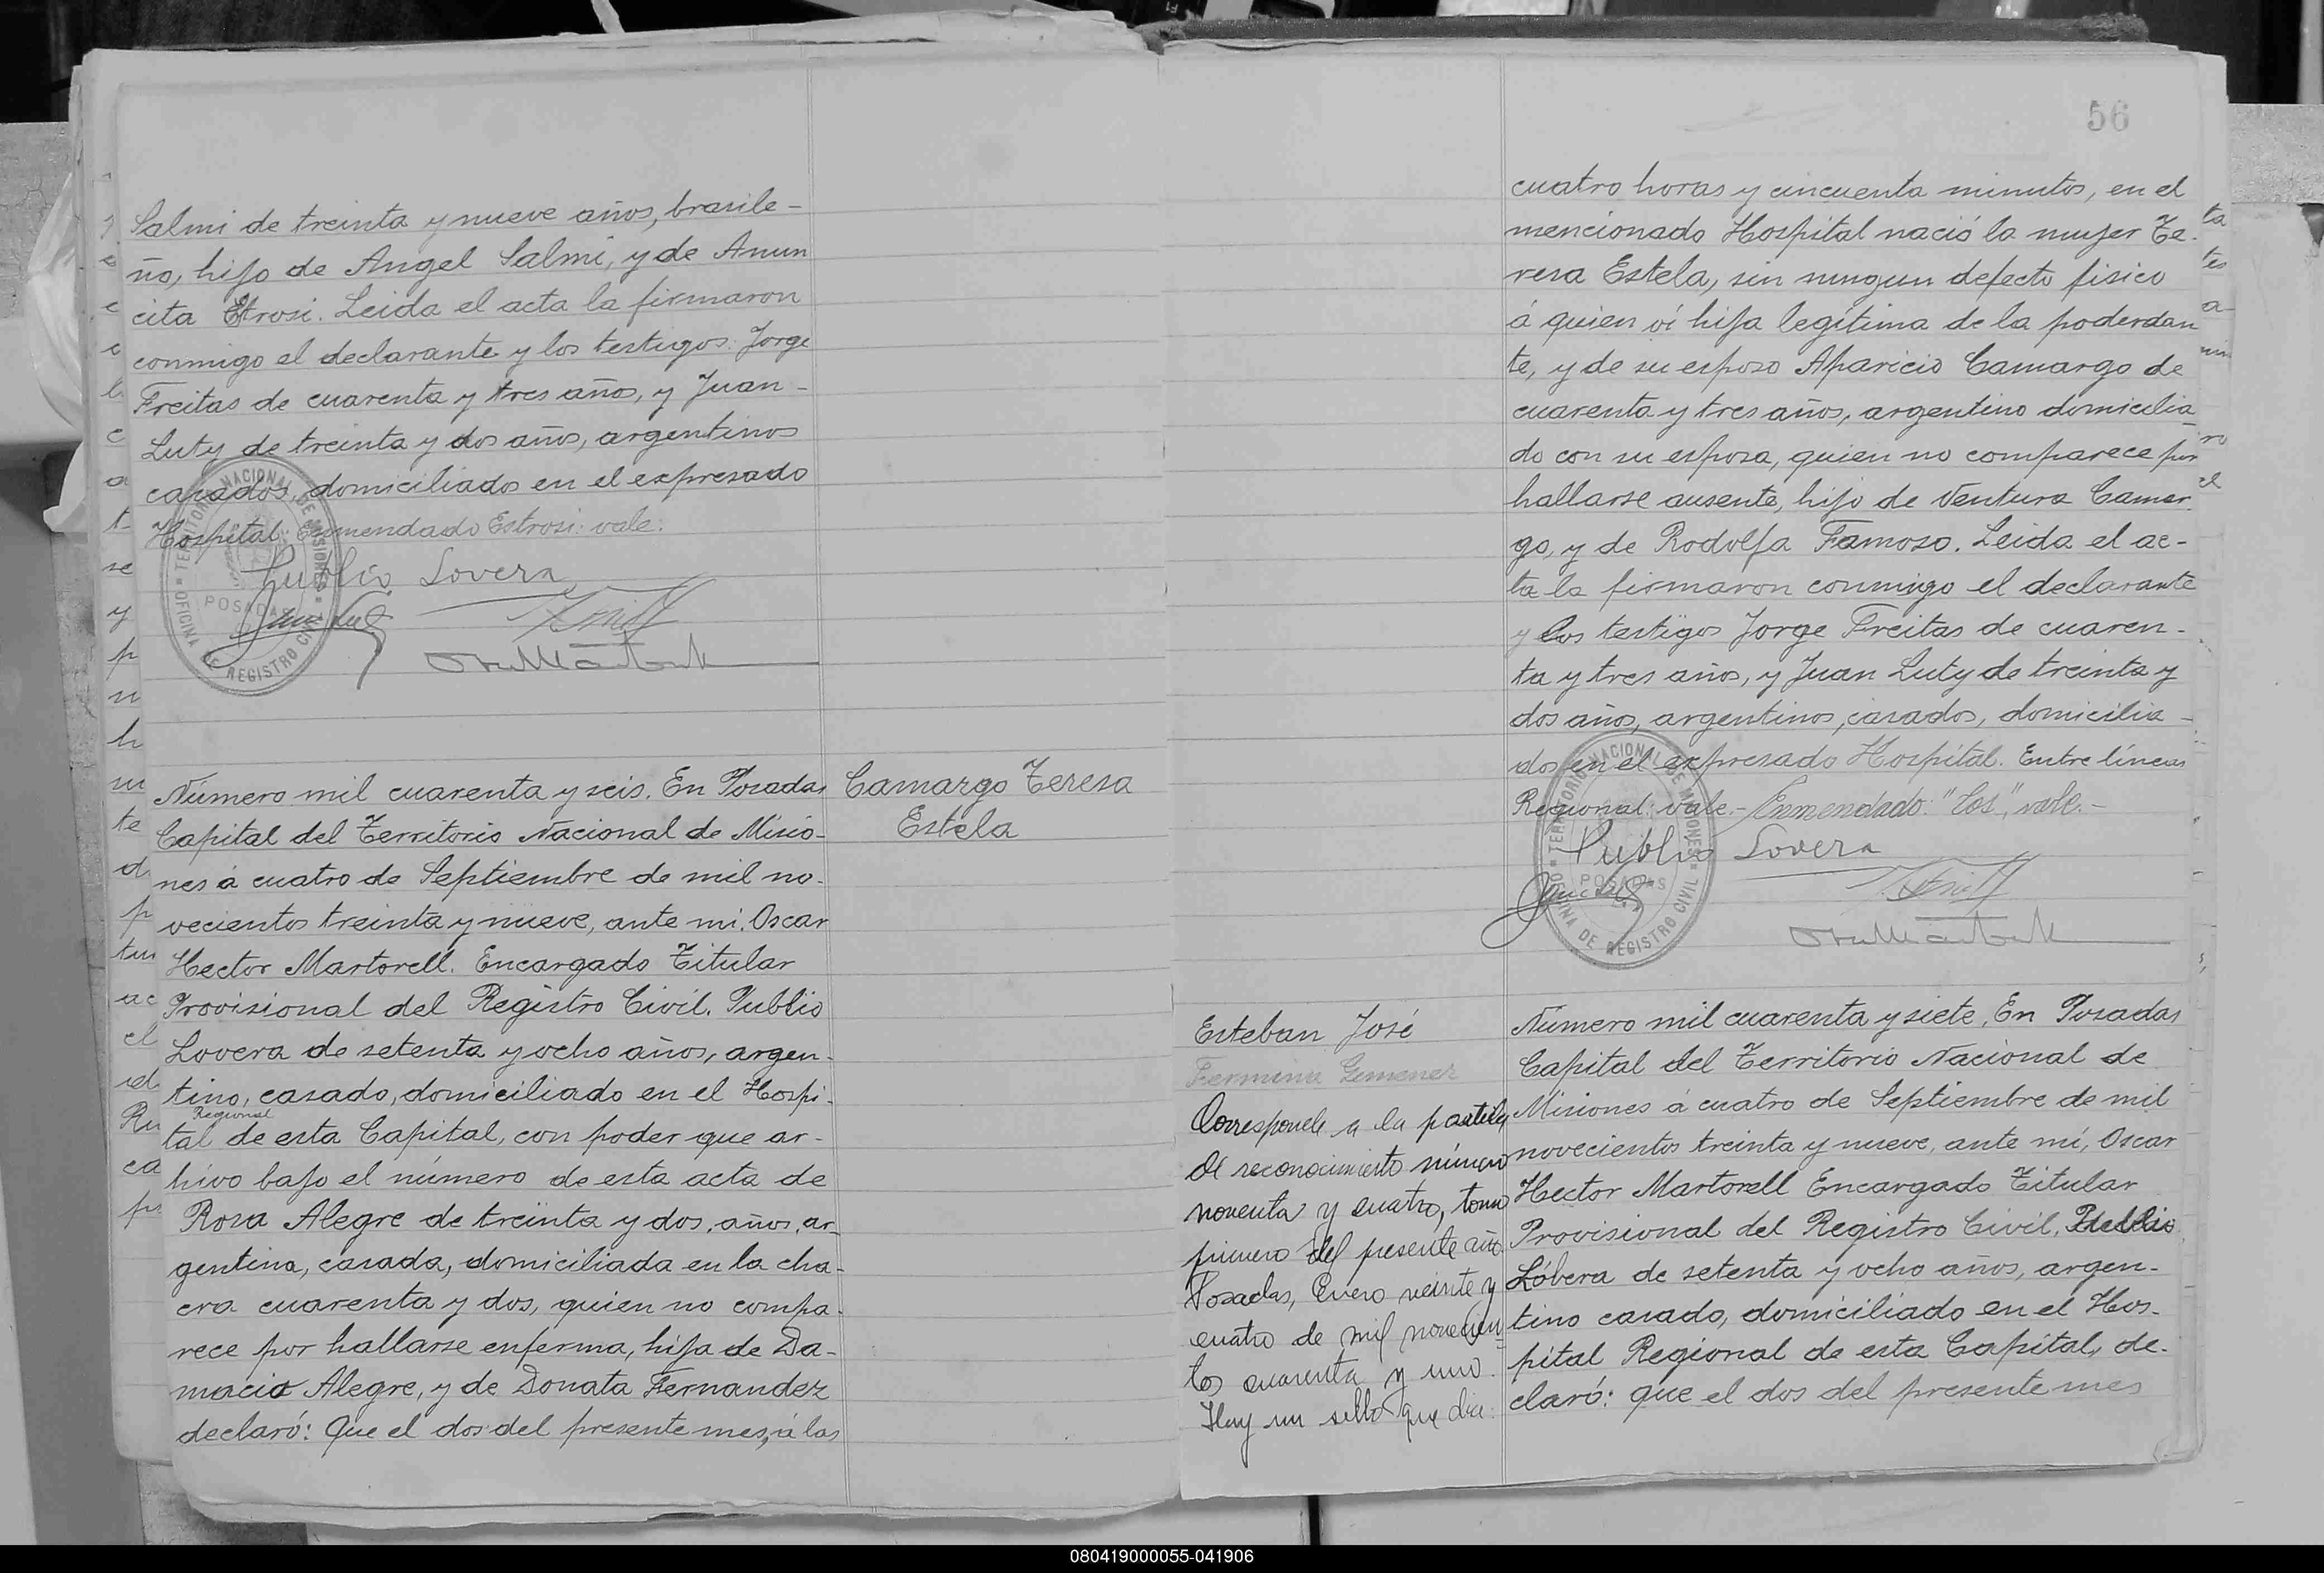 Salmi de treinta y nueve años, brasile-
ño, hijo de Angel Salmi, y de Anun
cita Estrosi. Leida el acta la firmaron
conmigo el declarante y los testigos: Jorge
Freitas de cuarenta y tres año, y Juan -
Luty de treinta y dos años, argentinos
casados, domiciliados en el expresado
Hospital: Enmendado Estrosi: vale:
Publio Lovera
TERRITORIO NACIONAL DE MISIONES
POSADAS
OFICINA DE REGISTRO CIVIL
Número mil cuarenta y seis. En Posadas
Capital del Territorio Nacional de Misio-
nes á cuatro de Septiembre de mil no-
vecientos treinta y nueve, ante mi. Oscar
Hector Martorell. Encargado Titular
Provisional del Registro Civil. Publio
Lovera de setenta y ocho años, argen-
tino, casado, domiciliado en el Hospi-
Regional
tal de esta Capital, con poder que ar-
hivo bajo el número de esta acta de
Rosa Alegre de treinta y dos, años, ar-
gentina, casada, domiciliada en la cha-
cra cuarenta y dos, quien no compa-
rece por hallarse enferma, hija de Da-
macio Alegre, y de Donata Fernandez
declaró: Que el dos del presente mes, á las
Camargo Teresa
Estela
56
cuatro horas y cincuenta minutos, en el
mencionado Hospital nació la mujer Te-
resa Estela, sin ningun defecto fisico
á quien ví hija legítima de la poderdan
te, y de su esposo Aparicio Camargo de
cuarenta y tres años, argentino domicilia
do con su esposa, quien no comparece por
hallarse ausente, hijo de Ventura Camar-
go, y de Rodolfa Famoso. Leida el ac-
ta la firmaron conmigo el declarante
y los testigos Jorge Freitas de cuaren-
ta y tres años, y Juan Luty de treinta y
dos años, argentinos, casados, domicilia-
dos en el expresado Hospital. Entre líneas
Regional: vale.- Enmendado: "los", vale.-
Publio Lovera
TERRITORIO NACIONAL DE MISIONES
POSADAS
OFICINA DE REGISTRO CIVIL
Esteban José
Fermina Gimenez
Corresponde a la partida
de reconocimiento número
noventa y cuatro, tomo
primero del presente año.
Posadas, Enero veinte y
cuatro de mil novecien-
tos cuarenta y uno.
Hay un sello que dice:
Número mil cuarenta y siete, En Posadas
Capital del Territorio Nacional de
Misiones á cuatro de Septiembre de mil
novecientos treinta y nueve, ante mí, Oscar
Hector Martorell Encargado Titular
Provisional del Registro Civil, Publio
Lóbera de setenta y ocho años, argen-
tino casado, domiciliado en el Hos-
pital Regional de esta Capital, de-
claró: que el dos del presente mes
080419000055-041906